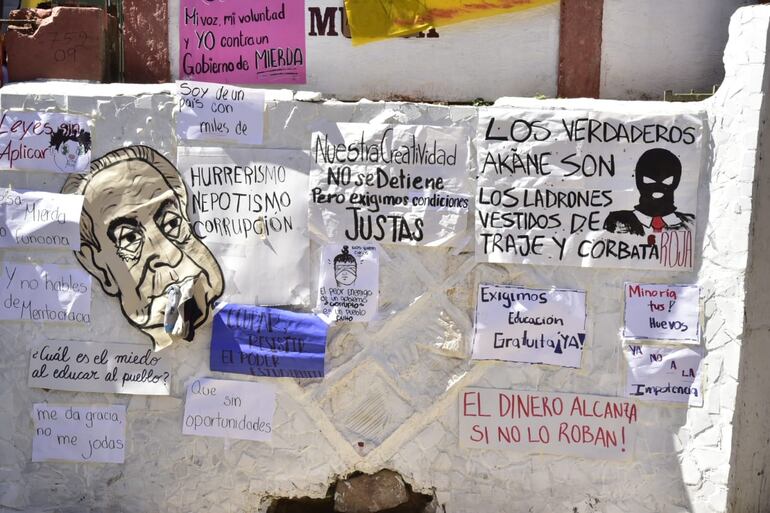 Mi voz, mi voluntad
y YO contra un
Gobierno de MIERDA
Soy de un
país con
miles de
Leyes sin
Aplicar
esa Mierda
no funciona
Y no hables
de Meritocracia
¿Cuál es el miedo
al educar al pueblo?
me da gracia
no me jodas
HURRERISMO
NEPOTISMO
CORRUPCIÓN
Que sin
oportunidades
OCUPAR,
RESISTIR
EL PODER
ESTUDIANTIL
NuestrA CreAtividAD
NO se Detiene
Pero exigimos condiciones
JUSTAS
El peor enemigo
de un gobierno
CORRUPTO
es un PUEBLO
Culto
LOS VERDADEROS
AKÃNE SON
LOS LADRONES
VESTIDOS DE
TRAJE Y CORBATA ROJA
Exigimos
Educación
Gratuita ¡YA!
Minoria
tus!
Huevos
YA NO A LA
Impotencia
EL DINERO ALCANZA
SI NO LO ROBAN!